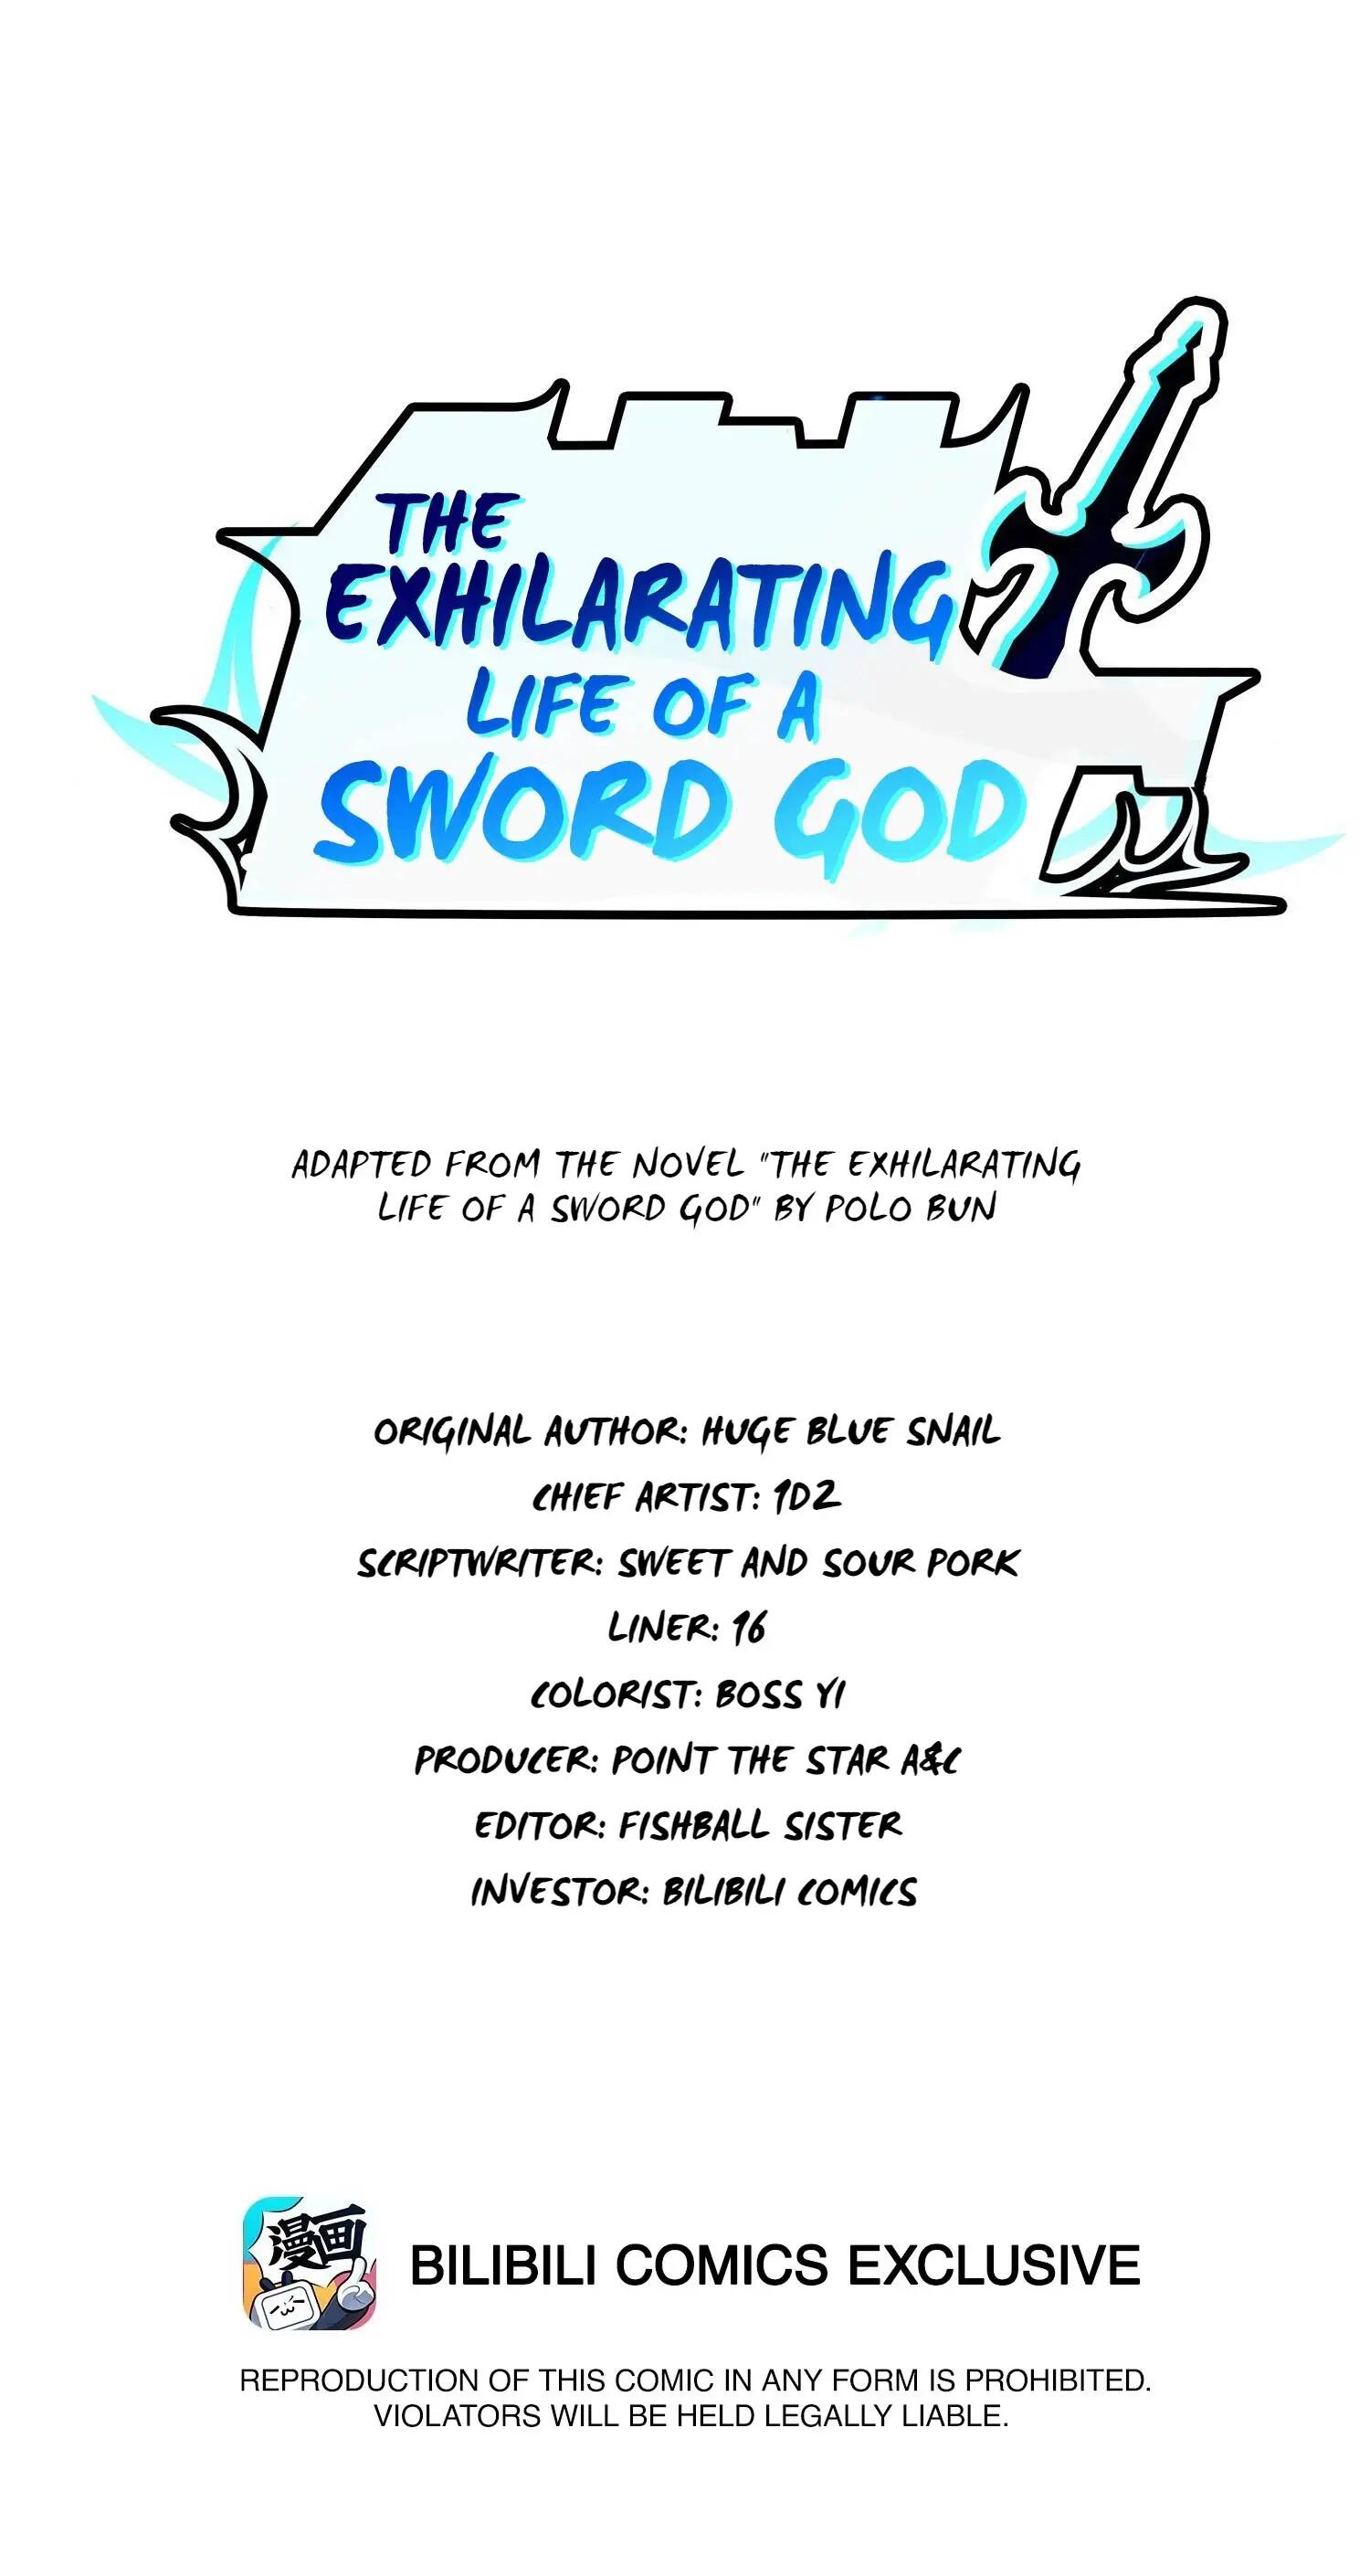 THE
EXHILARATING
LIFE OF A
SWORD GOD
ADAPTED FROM THE NOVEL "THE EXHILARATING
LIFE OF A SWORD GOD" BY POLO BUN
ORIGINAL AUTHOR: HUGE BLUE SNAIL
CHIEF ARTIST: 1D2
SCRIPTWRITER: SWEET AND SOUR PORK
LINER: 16
COLORIST: BOSS YI
PRODUCER: POINT THE STAR A&C
EDITOR: FISHBALL SISTER
INVESTOR: BILIBILI COMICS
漫画
BILIBILI COMICS EXCLUSIVE
REPRODUCTION OF THIS COMIC IN ANY FORM IS PROHIBITED.
VIOLATORS WILL BE HELD LEGALLY LIABLE.